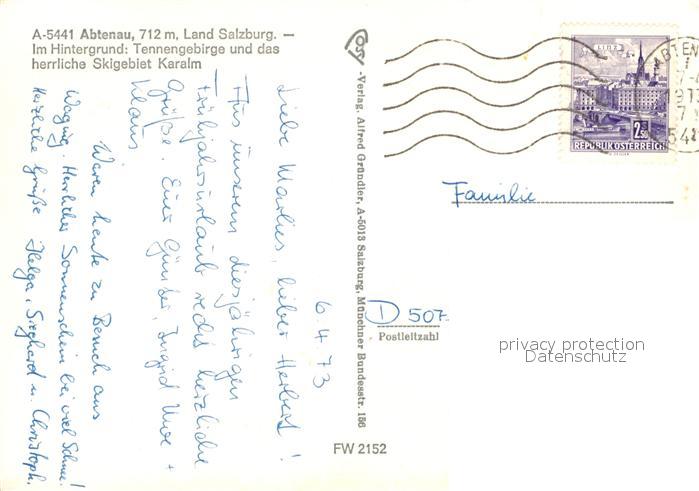 A-5441 Abtenau, 712 m, Land Salzburg. —
Im Hintergrund: Tennengebirge und das
herrliche Skigebiet Karalm
6 4 73
Liebe Marlies, lieber Herbert!
Aus unserem diesjährigen
Frühjahrsurlaub recht herzliche
Grüße. Eure Günter, Ingrid Uwe +
Klaus
Waren heute zu Besuch aus
Waging. Herrlicher Sonnenschein bei viel Schnee!
Herzliche Grüße Helga, Sieghard u. Christoph.
Foss-Verlag, Alfred Gründler, A-5013 Salzburg, Münchner Bundesstr. 156
FW 2152
LINZ
2.50
REPUBLIK ÖSTERREICH
ABTEN
Familie
D 507
Postleitzahl
privacy protection
Datenschutz